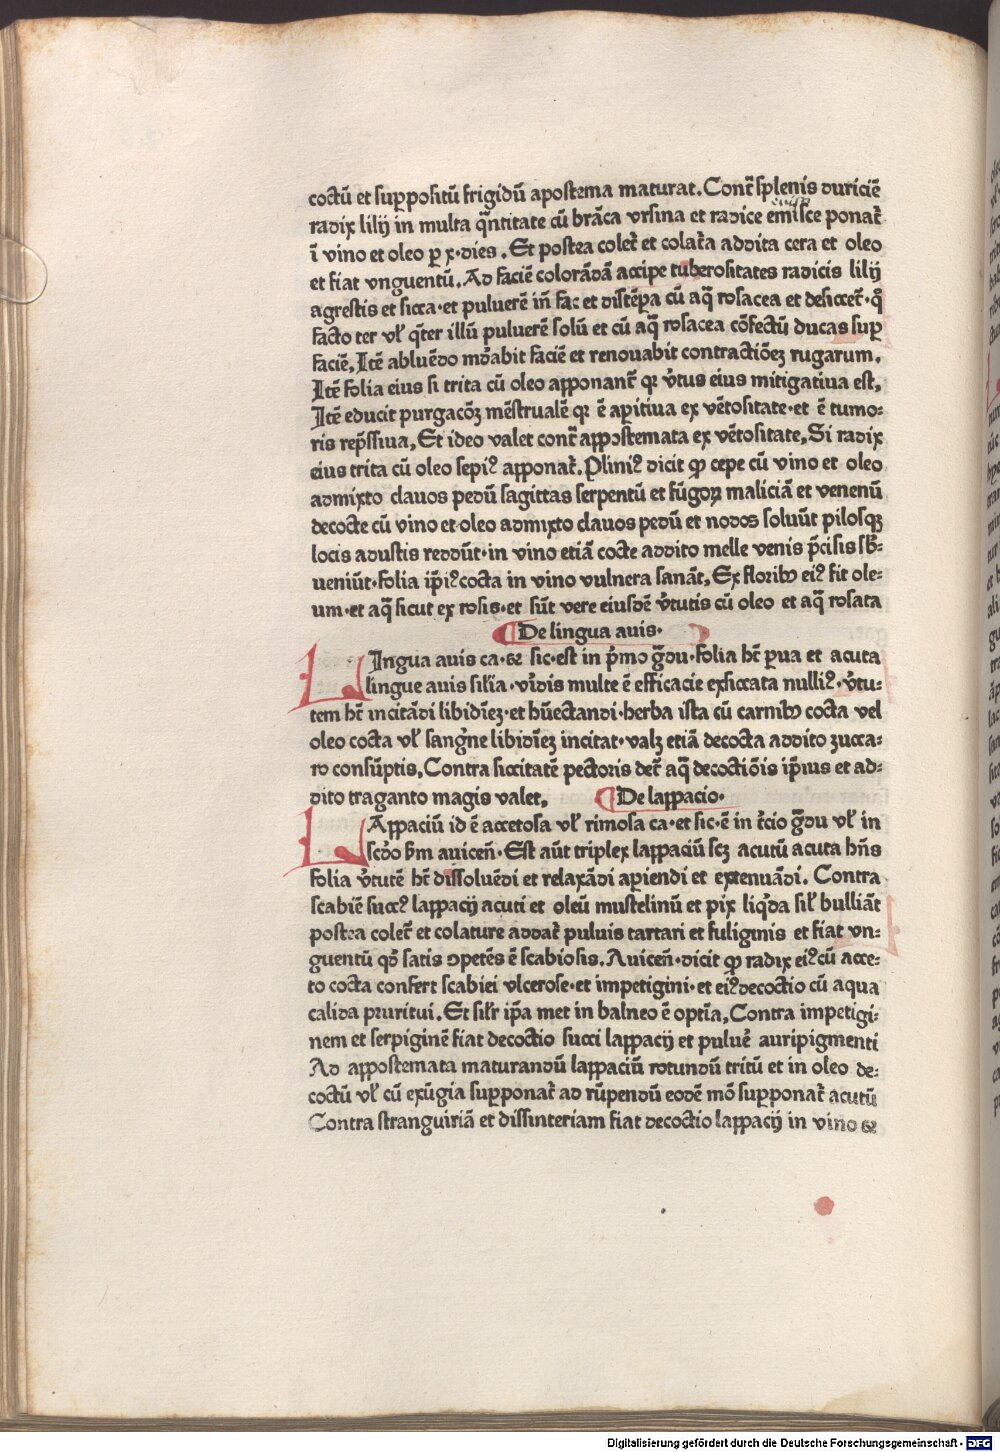 coctū et suppositū frigidū apostema maturat. Contͬ splenis duriciē
radix lilij in multa q̄ntitate cū brāca vrsina et radice emisce ponat͛
ī vino et oleo ꝑ x·dies. Et postea colet͛ et colat͛a addita cera et oleo
et fiat vnguentū. Ad faciē colorādā accipe tuberositates radicis lilij
agrestis et sicca·et puluerē in̄ fac et distēpa cū aq̄ rosacea et desiccet͛·qͦ
facto ter vl̕ q̄ter illū puluerē solū et cū aq̄ rosacea cōfectū ducas suꝑ
faciē. Itē abluēdo mūdabit faciē et renouabit contractiōeꝫ rugarum.
Itē folia eius si trita cū oleo apponant͛ qꝛ v̕tus eius mitigatiua est.
Itē educit purgacōꝫ mēstrualē qꝛ ē apitiua ex vētositate·et ē tumo-
ris rep̄ssiua. Et ideo valet contͬ appostemata ex vētositate. Si radix
eius trita cū oleo sepiꝰ apponat͛. Pliniꝰ dicit ꝙ cepe cū vino et oleo
admixto clauos pedū sagittas serpentū et fūgoꝝ maliciā et venenū
decocte cū vino et oleo admixto clauos pedū et nodos soluūt pilosqꝫ
locis adustis reddūt·in vino etiā cocte addito melle venis p̄cisis sb̄-
ueniūt·folia ip̄iꝰ cocta in vino vulnera sanāt. Ex floribꝰ eiꝰ fit ole-
um·et aq̄ sicut ex rosis·et sūt vere eiusdē v̕tutis cū oleo et aq̄ rosata
De lingua auis·
LIngua auis ca·⁊ sic·est in p̄mo ḡdu·folia hꝫ ꝑua et acuta
lingue auis sil̕ia·v̕idis multe ē efficacie exsiccata nulliꝰ·v̕tu-
tem hꝫ incitādi libidīeꝫ·et hūectandi·herba ista cū carnibꝰ cocta vel
oleo cocta vl̕ sang̕ne libidīeꝫ incitat·valꝫ etiā decocta addito zucca-
ro consūptis. Contra siccitatē pectoris det͛ aq̄ decoctiōis ip̄ius et ad-
dito traganto magis valet. De lappacio·
LAppaciū id ē accetosa vl̕ rimosa ca·et sic·ē in t͛cio ḡdu vl̕ in
scd̕o ẜm auicen̄·Est aūt triplex lappaciū scꝫ acutū acuta hn̄s
folia v̕tutē hꝫ dissoluēdi et relaxādi apiendi et extenuādi. Contra
scabiē succꝰ lappacij acuti et oleū mustelinū et pix liq̕da sil̕ bulliāt
postea colet͛ et colature addat͛ puluis tartari et fuliginis et fiat vn-
guentū qd̕ satis ꝯpetēs ē scabiosis. Auicen̄·dicit ꝙ radix eiꝰ cū acce-
to cocta confert scabiei vlcerose·et impetigini·et eiꝰ decoctio cū aqua
calida pruritui. Et sil̕r ip̄a met in balneo ē optīa. Contra impetigi-
nem et serpiginē fiat decoctio succi lappacij et puluē auripigmenti
Ad appostemata maturandū lappaciū rotundū tritū et in oleo de-
coctū vl̕ cū exūgia supponat͛ ad rūpendū eodē mō supponat͛ acutū
Contra stranguiriā et dissinteriam fiat decoctio lappacij in vino ⁊
Digitalisierung gefördert durch die Deutsche Forschungsgemeinschaft - DFG